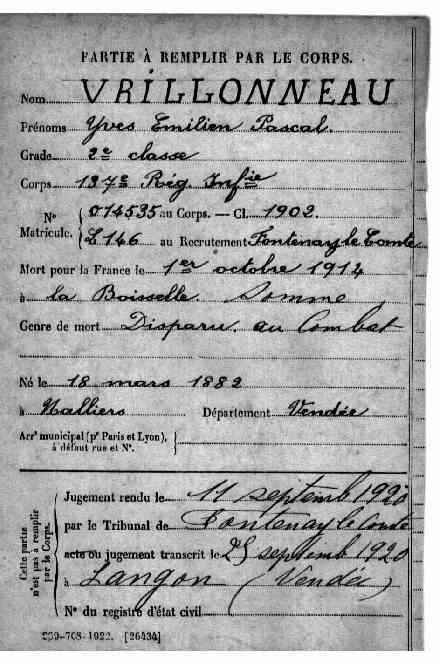 PARTIE À REMPLIR PAR LE CORPS.
Nom VRILLONNEAU
Prénoms Yves Emilien Pascal.
Grade 2e classe
Corps 137e Rég. Infie
N° Matricule. { 014535 au Corps. — Cl. 1902.
L 146 au Recrutement Fontenay le Comte
Mort pour la France le 1er octobre 1914
à la Boisselle. Somme
Genre de mort Disparu au Combat
Né le 18 mars 1882
à Nalliers Département Vendée
Arrt municipal (pr Paris et Lyon),
à défaut rue et N°.
Cette partie n'est pas à remplir par le Corps.
Jugement rendu le 11 septemb 1920
par le Tribunal de Fontenay le Comte
acte ou jugement transcrit le 25 septemb 1920
à Langon (Vendée)
N° du registre d'état civil
539-708-1922. [26434]